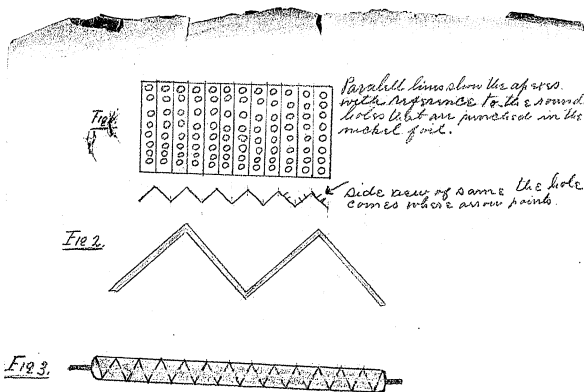 Parallell lines show the apexes
with reference to the round
holes that are punched in the
nickel foil.
Fig 1.
side view of same the hole
comes where arrow points.
Fig 2.
Fig 3.